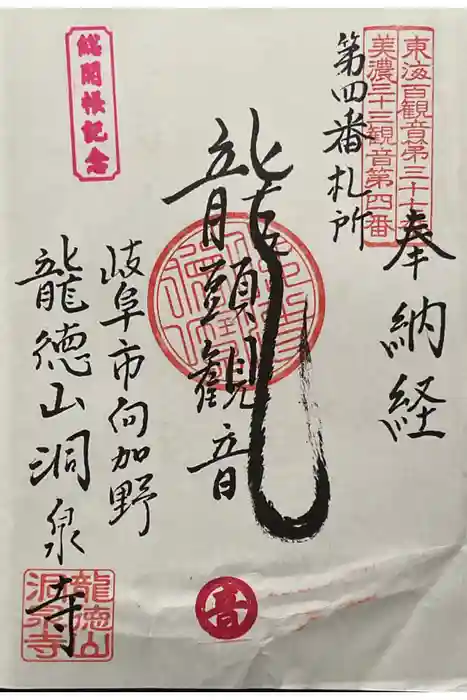 東海百観音第三十七番
美濃三十三観音第四番
奉納経
第四番札所
龍頭観音
岐阜市向加野
龍徳山洞泉寺
総開帳記念
龍徳山
洞泉寺